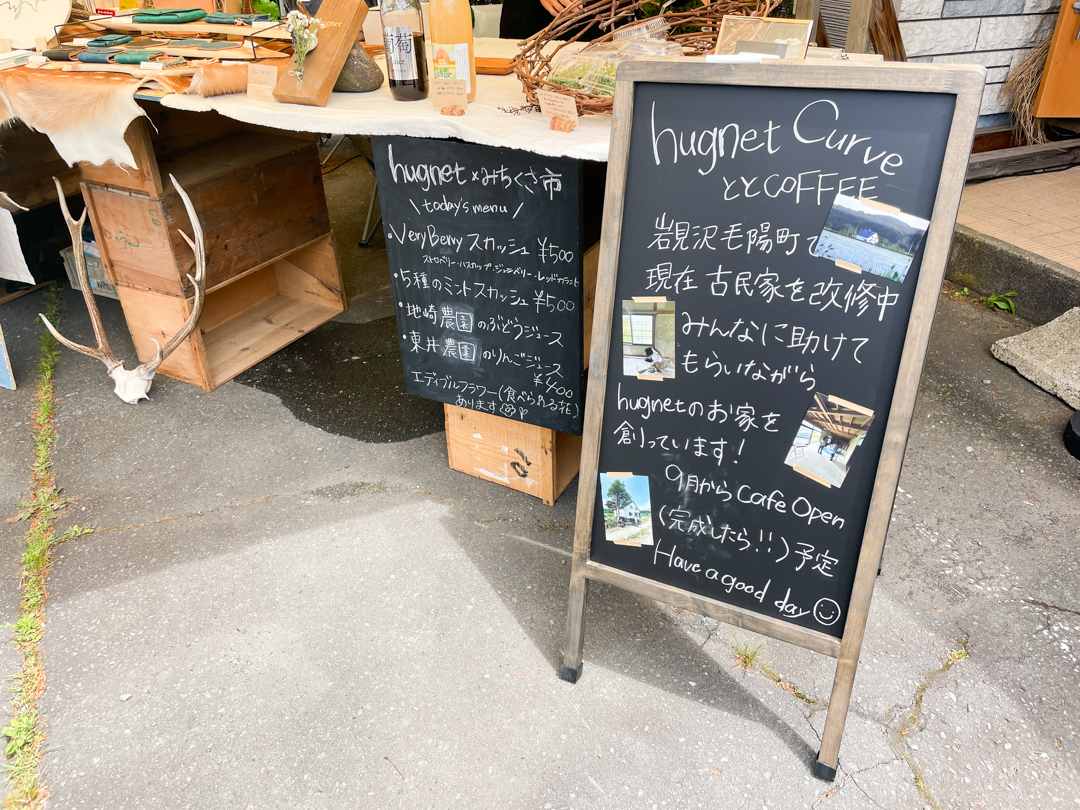 hugnet
葡萄
hugnet × みちくさ市
\ today's menu /
・VeryBerry スカッシュ ¥500
ストロベリー・ハスカップ・ジューンベリー・レッドカラント
・5種のミントスカッシュ ¥500
・地崎農園のぶどうジュース
・東井農園のりんごジュース
¥400
エディブルフラワー(食べられる花)
あります
hugnet Curve
ととCOFFEE
岩見沢毛陽町で
現在 古民家を改修中
みんなに助けて
もらいながら
hugnetのお家を
創っています!
9月から Cafe Open
(完成したら!!)予定
Have a good day ☺